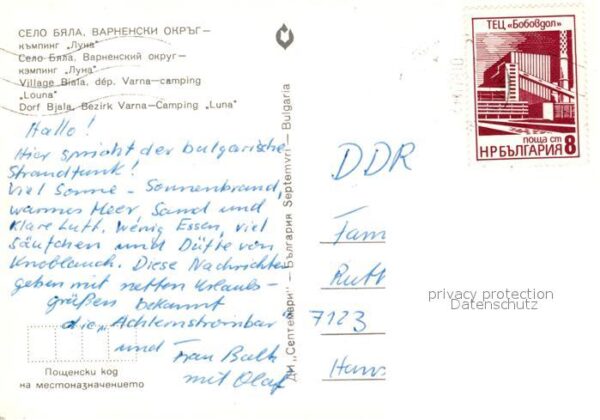 СЕЛО БЯЛА, ВАРНЕНСКИ ОКРЪГ—
къмпинг „Луна"
Село Бяла, Варненский округ—
кэмпинг „Луна"
Village Biala, dép. Varna—camping
„Louna"
Dorf Bjala, Bezirk Varna—Camping „Luna"
Hallo!
Hier spricht der bulgarische
Strandfunk!
Viel Sonne - Sonnenbrand,
warmes Meer, Sand und
klare Luft. Wenig Essen, viel
Säufchen und Düfte von
Knoblauch. Diese Nachrichten
geben mit netten Urlaubs-
grüßen bekannt
die
und Frau
mit Olaf
Пощенски код
на местоназначението
ДИ „Септември" — България Septemvri — Bulgaria
ТЕЦ „Бобовдол"
поща ст
НР БЪЛГАРИЯ 8
DDR
Fam
7123
privacy protection
Datenschutz